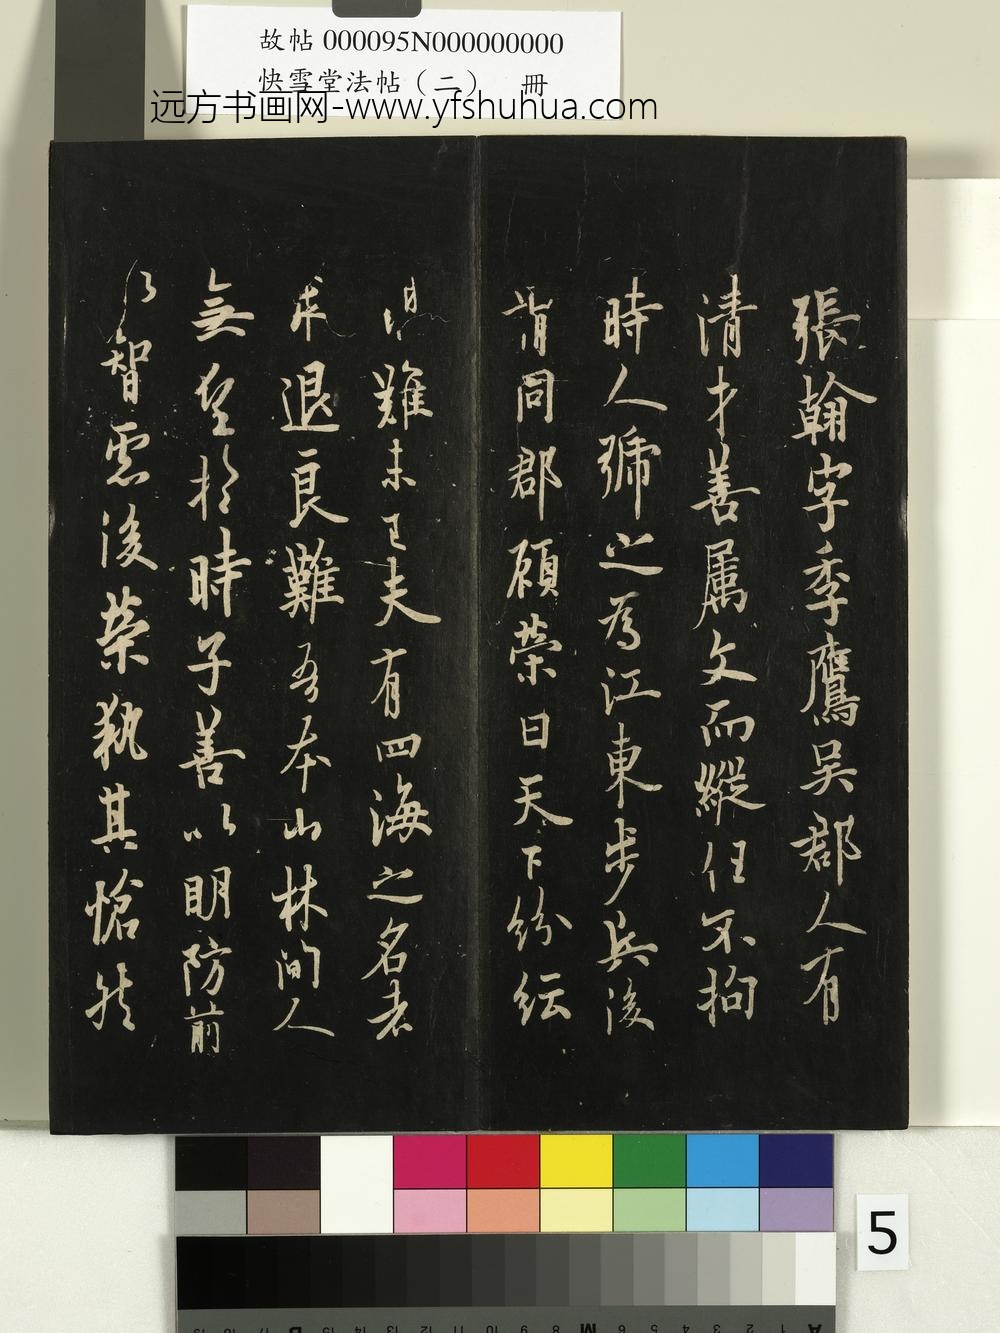 故帖 000095N000000000
快雪堂法帖（二） 冊
远方书画网-www.yfshuhua.com
張翰字季鷹吳郡人有
清才善属文而縱任不拘
時人號之為江東步兵後
同郡顧榮曰天下紛紜
難未已夫有四海之名者
求退良難吾本山林間人
無望於時子善以明防前
以智慮後榮執其愴然
5